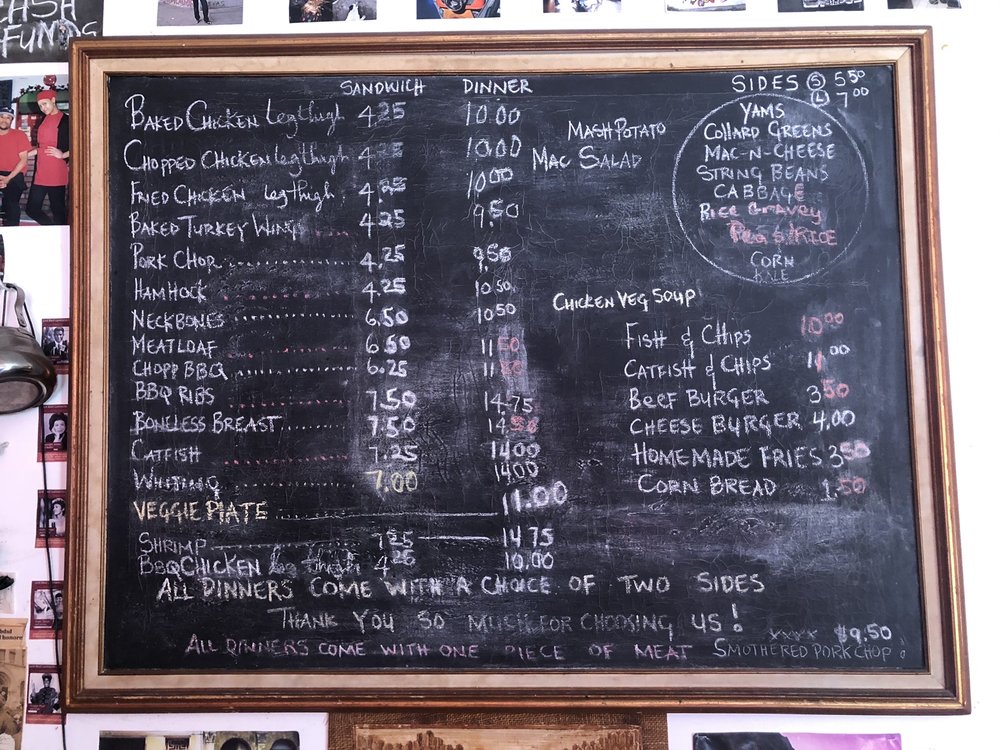 CASH
FUNDS
SANDWICH DINNER
BAKED CHICKEN leg thigh 4.25 10.00
CHOPPED CHICKEN leg thigh 4.25 10.00
FRIED CHICKEN leg thigh 4.25 10.00
BAKED TURKEY WING 4.25 9.50
PORK CHOP 4.25 9.50
HAM HOCK 4.25 10.50
NECKBONES 6.50 10.50
MEATLOAF 6.50 11.50
CHOPP BBQ 6.25 11.50
BBQ RIBS 7.50 14.75
BONELESS BREAST 7.50 14.50
CATFISH 7.25 14.00
WHITING 7.00 14.00
VEGGIE PLATE 11.00
SHRIMP 7.25 14.75
BBQ CHICKEN leg thigh 4.25 10.00
MASH POTATO
MAC SALAD
SIDES (S) 5.50
(L) 7.00
YAMS
COLLARD GREENS
MAC-N-CHEESE
STRING BEANS
CABBAGE
RICE GRAVEY
PEAS & RICE
CORN
KALE
CHICKEN VEG SOUP
FISH & CHIPS 10.00
CATFISH & CHIPS 11.00
BEEF BURGER 3.50
CHEESE BURGER 4.00
HOMEMADE FRIES 3.50
CORN BREAD 1.50
ALL DINNERS COME WITH A CHOICE OF TWO SIDES
THANK YOU SO MUCH FOR CHOOSING US!
ALL DINNERS COME WITH ONE PIECE OF MEAT
XXXX $9.50
SMOTHERED PORK CHOP!